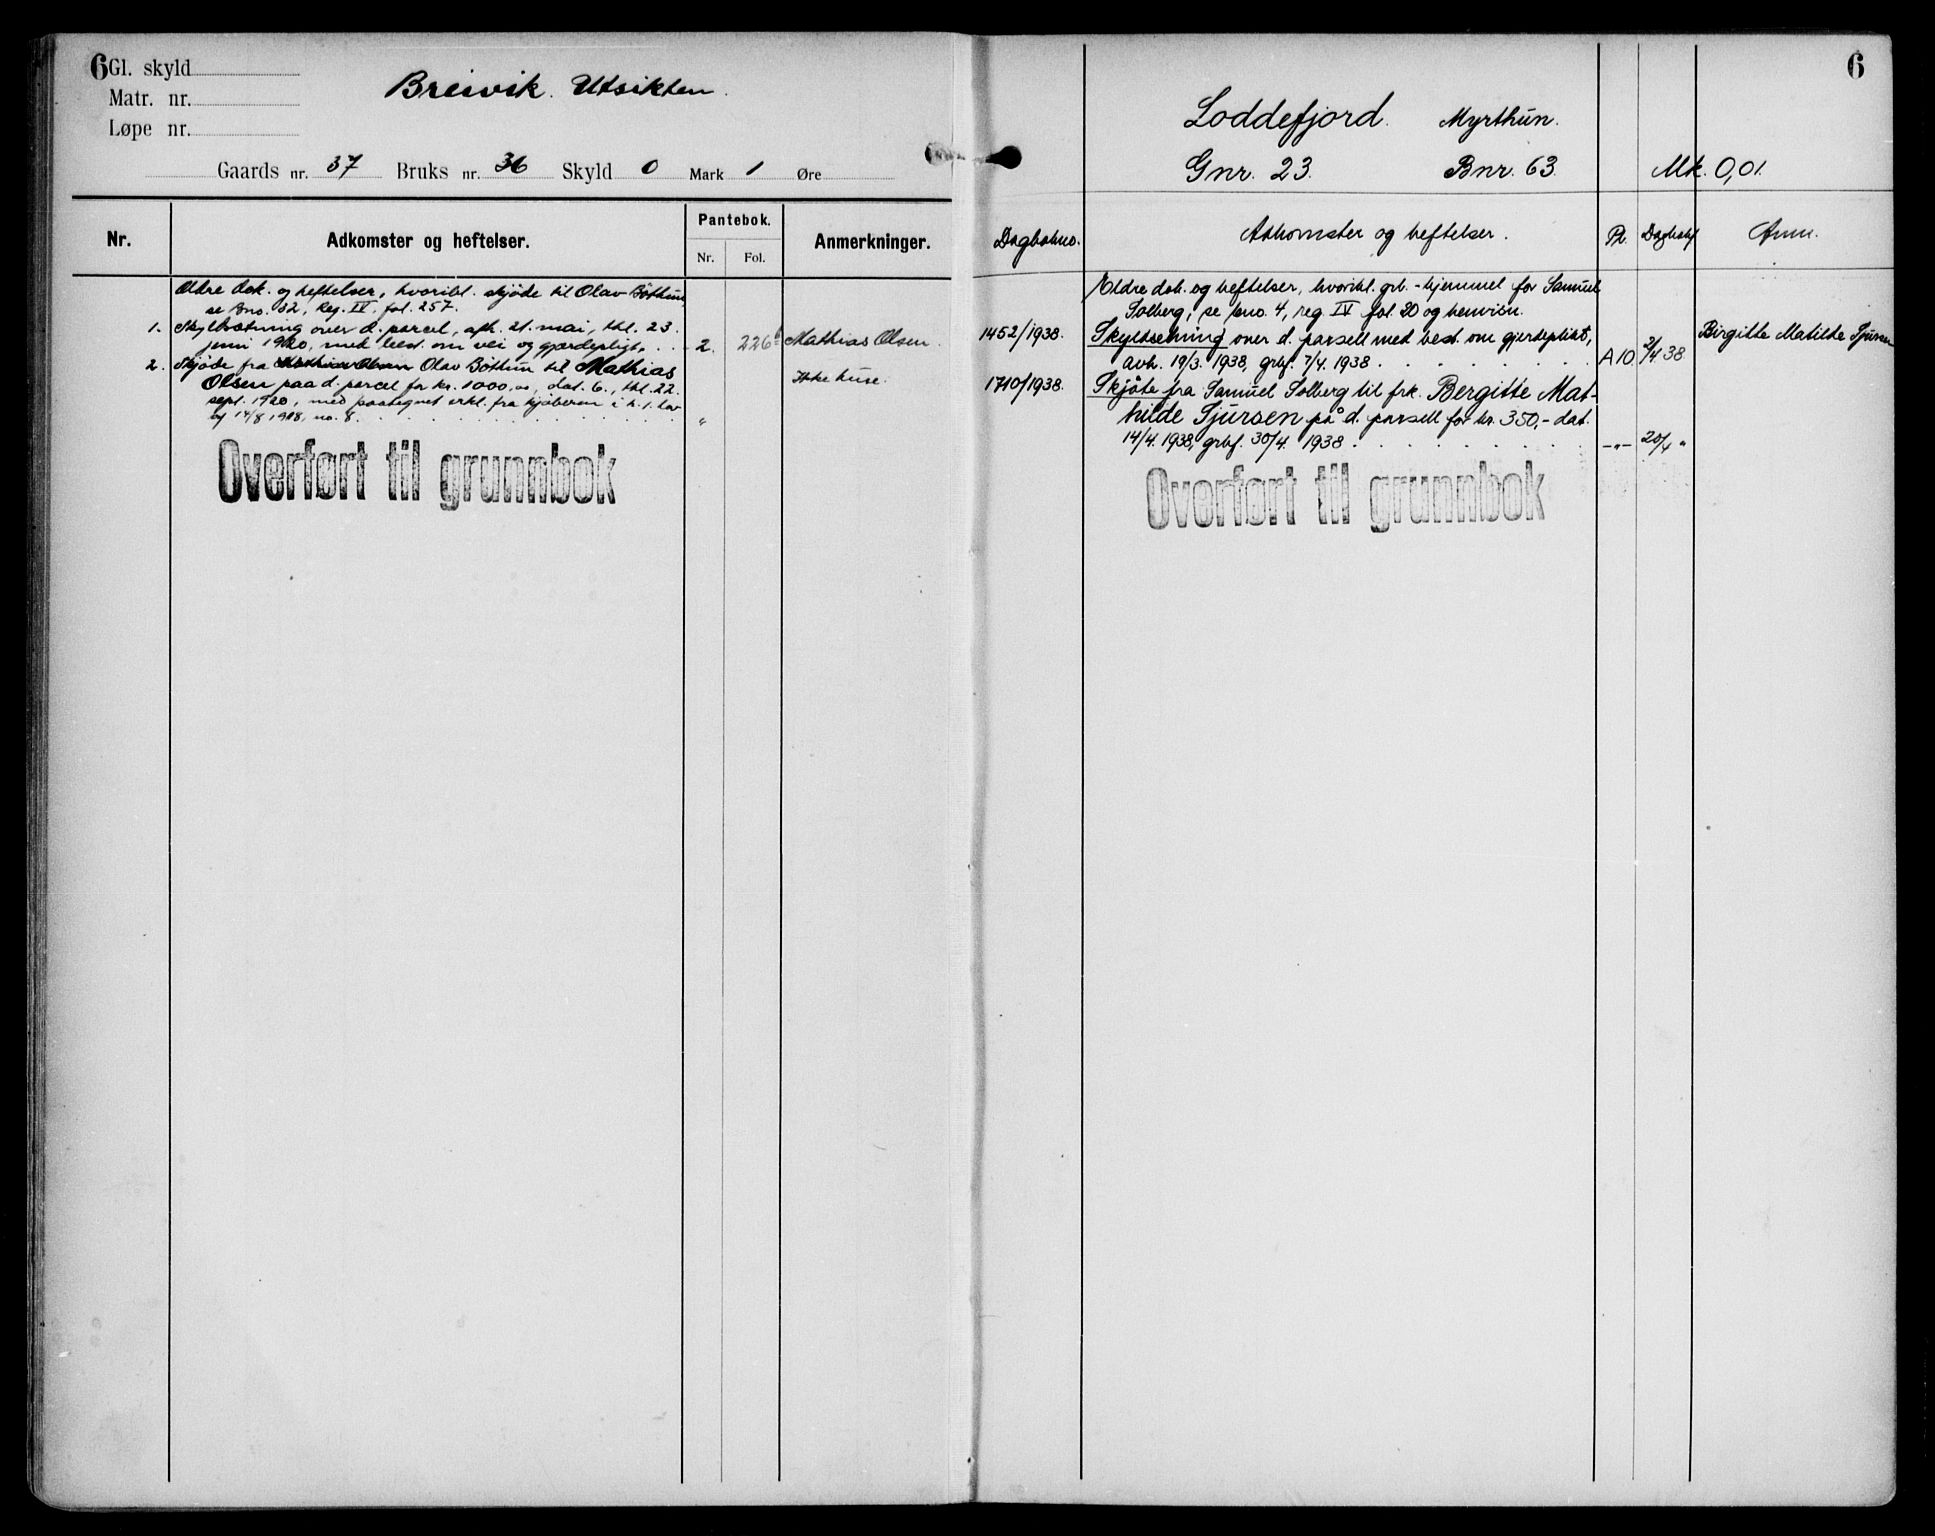 6 Gl. skyld
Matr. nr.
Løpe nr.
Breivik. Utsikten.
Gaards nr. 37 Bruks nr. 36 Skyld 0 Mark 1 Øre
Nr.
Adkomster og heftelser.
Pantebok.
Nr. Fol.
Anmerkninger.
Ældre dok. og heftelser, hvoribl. skjøde til Olav Böthun
se Bno. 32, Reg. IV. fol. 257.
1. Skyldsætning over d. parcel, afh. 21. mai, thl. 23.
juni 1920, med best. om vei og gjærdepligt. . . 2. 226 b Mathias Olsen.
2. Skjøde fra Olav Böthun til Mathias
Olsen paa d. parcel for kr. 1000,00, dat. 6., thl. 22. Ikke huse.
sept. 1920, med paategnet erkl. fra kjøberen i h. t. lov
af 14/8 1918, no. 8. "
Overført til grunnbok
6
Loddefjord. Myrthun.
Gnr. 23. Bnr. 63. Mk. 0,01.
Dagbokno.
Atkomster og heftelser.
Pb.
Dagbokf
Anm.
Ældre dok. og heftelser, hvoribl. grb.-hjemmel for Samuel
Solberg, se bno. 4, reg. IV fol. 20 og henvisn.
1452/1938. Skyldsetning over d. parsell med best. om gjerdeplikt,
avh. 19/3. 1938, grbf. 7/4. 1938 A 10 2/4 38 Birgitte Matilde Sjursen
1710/1938. Skjøte fra Samuel Solberg til frk. Bergitte Mat-
hilde Sjursen på d. parsell for kr. 350,- dat.
14/4. 1938, grbf. 30/4. 1938 -"- 20/4 "
Overført til grunnbok